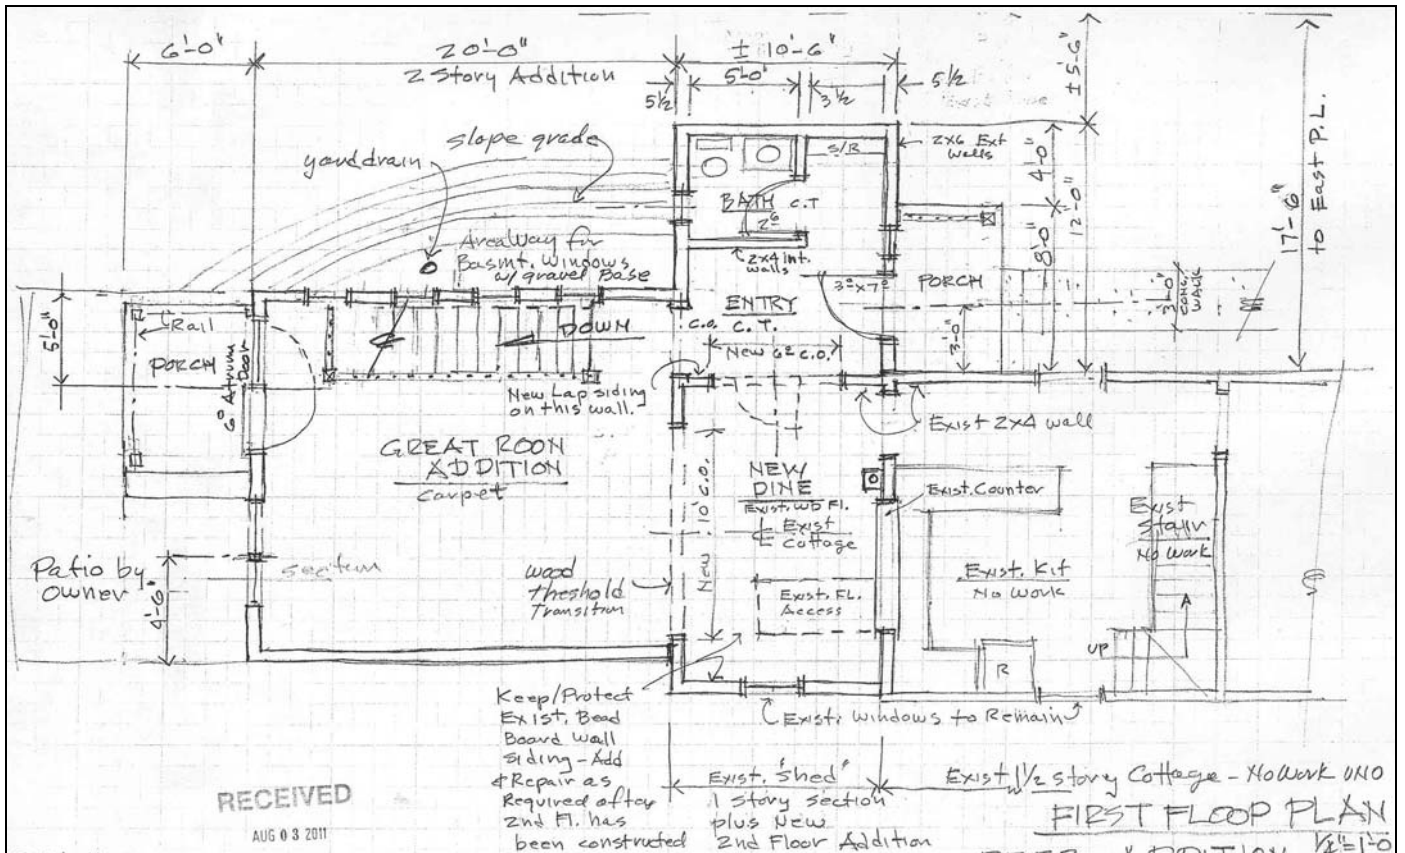 6'-0"
20'-0"
2 Story Addition
± 10'-6"
5'-0"
5½
3½
5½
± 5'-6"
17'-6"
to East P.L.
slope grade
yard drain
S/R
2x6 Ext
walls
4'-0"
12'-0"
8'-0"
BATH C.T
2⁶
2x4 Int.
walls
Areaway for
Basmt. Windows
w/ gravel Base
3⁰x7⁰
PORCH
3'-0"
CONC.
WALK
3'-0"
ENTRY
C.T.
C.O.
New 6⁰ C.O.
5'-0"
Rail
PORCH
6⁰ Atrium
Door
DOWN
New Lap siding
on this wall.
Exist 2x4 wall
GREAT ROOM
ADDITION
carpet
NEW
DINE
Exist. WD Fl.
Exist
Cottage
New 10' C.O.
Exist. Counter
Exist
Stair
No Work
Exist. Kit
No Work
Patio by
Owner
4'-6"
section
wood
Theshold
Transition
Exist. FL.
Access
UP
R
Keep/Protect
Exist. Bead
Board Wall
siding - Add
& Repair as
Required after
2nd Fl. has
been constructed
Exist. Windows to Remain
Exist. "Shed"
1 Story Section
plus New
2nd Floor Addition
Exist 1½ Story Cottage - No Work UNO
FIRST FLOOP PLAN
¼"=1'-0
ADDITION
RECEIVED
AUG 03 2011